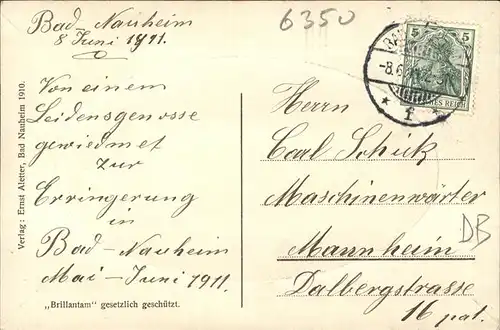 Bad-Nauheim
8 Juni 1911.
Von einem
Leidensgenosse
gewiedmet
zur
Erringerung
in
Bad-Nauheim
Mai-Juni 1911.
„Brillantam“ gesetzlich geschützt.
Verlag: Ernst Aletter, Bad Nauheim 1910.
6350
5 5
-8.6.
REICH
* 1 *
Herrn
Carl Schük
Maschinenwärter
Mannheim
Dalbergstrasse
16 pat.
DB